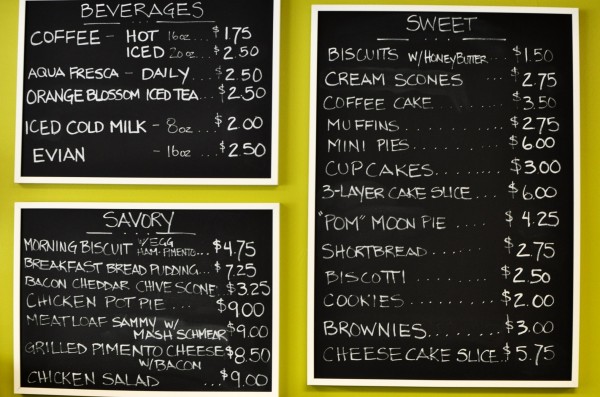 BEVERAGES
COFFEE - HOT 16oz. . $1.75
ICED 20oz. . $2.50
AQUA FRESCA - DAILY. . . $2.50
ORANGE BLOSSOM ICED TEA. . . $2.50
ICED COLD MILK - 8oz. . . $2.00
EVIAN - 16oz . . . . $2.50
SAVORY
MORNING BISCUIT W/EGG HAM-PIMENTO... $4.75
BREAKFAST BREAD PUDDING... $7.25
BACON CHEDDAR CHIVE SCONE $3.25
CHICKEN POT PIE . . . . $9.00
MEATLOAF SAMMY W/
MASH SCHMEAR $9.00
GRILLED PIMENTO CHEESE $8.50
W/BACON
CHICKEN SALAD . . . $9.00
SWEET
BISCUITS W/HONEYBUTTER. . . $1.50
CREAM SCONES . . . . $2.75
COFFEE CAKE . . . . . $3.50
MUFFINS. . . . . . . . $2.75
MINI PIES. . . . . . . $6.00
CUPCAKES. . . . . . $3.00
3-LAYER CAKE SLICE. . . $6.00
"POM" MOON PIE . . . . $4.25
SHORTBREAD. . . . . $2.75
BISCOTTI . . . . . . $2.50
COOKIES . . . . . . . $2.00
BROWNIES. . . . . . $3.00
CHEESECAKE SLICE. . $5.75